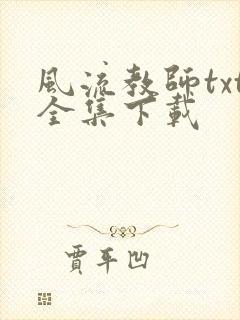 風流教師txt
全集下載
賈平凹